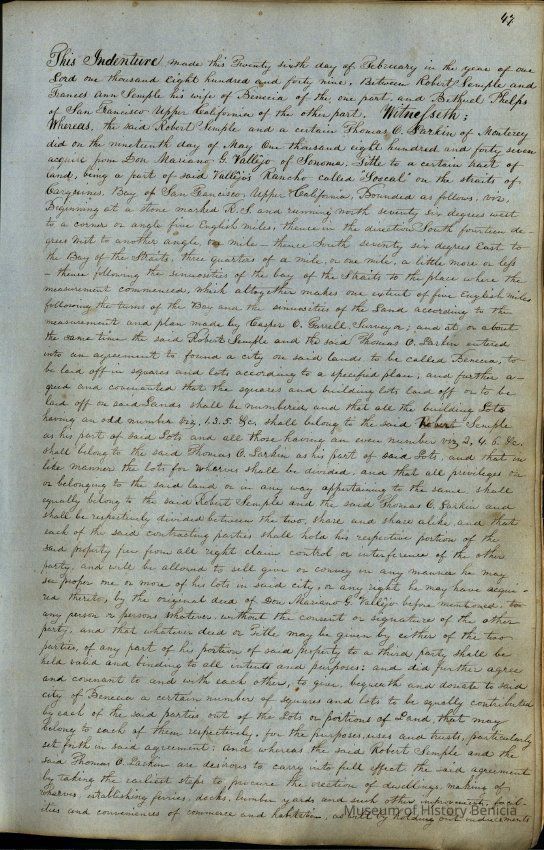 47
This Indenture made this Twenty sixth day of February in the year of our
Lord one thousand Eight hundred and forty nine, Between Robert Semple and
Frances Ann Semple his wife of Benecia of the one part, and Bethuel Phelps
of San Francisco Upper California of the other part, Witnesseth:
Whereas, the said Robert Semple and a certain Thomas O. Larkin of Monterey
did on the nineteenth day of May One thousand eight hundred and forty seven
acquire from Don Mariano G. Vallejo of Sonoma, Title to a certain tract of
land, being a part of said Vallejo's Rancho called "Soscal" on the straits of
Carquines, Bay of San Francisco, Upper California, Bounded as follows, viz,
Beginning at a stone marked R. S. and running north seventy six degrees west
to a corner or angle five English miles, thence in the direction South fourteen de-
grees West to another angle, one mile – thence South seventy six degrees East to
the Bay of the Straits, three quarters of a mile, or one mile, a little more or less
– thence following the sinuosities of the bay of the Straits to the place where the
measurement commenced, which altogether makes one extent of five English miles
following the turns of the Bay and the sinuosities of the Land according to the
measurement and plan made by Casper O. Farrell, Surveyor; and at or about
the same time the said Robert Semple and the said Thomas O. Larkin entered
into an agreement to found a city on said lands to be called Benecia, to
be laid off in squares and lots according to a specified place, and further a-
greed and covenanted that the squares and building lots laid off or to be
laid off on said Lands shall be numbered and that all the building Lots
having an odd number viz, 1. 3. 5. &c, shall belong to the said Robert Semple
as his part of said Lots and all those having an even number viz 2. 4. 6. &c.
shall belong to the said Thomas O. Larkin as his part of said Lots, and that in
like manner the lots for Wharves shall be divided, and that all privileges on
or belonging to the said land or in any way appertaining to the same, shall
equally belong to the said Robert Semple and the said Thomas O. Larkin and
shall be respectively divided between the two, share and share alike, and that
each of the said contracting parties shall hold his respective portion of the
said property free from all right claim control or interference of the other
party, and will be allowed to sell give or convey in any manner he may
see proper one or more of his lots in said city, or any right he may have acqui-
red thereto, by the original deed of Don Mariano G. Vallejo before mentioned, to
any person or persons whatever, without the consent or signature of the other
party, and that whatever deed or Title may be given by either of the two
parties, of any part of his portion of said property to a third party, shall be
held valid and binding to all intents and purposes; and did further agree
and covenant to and with each other, to give, bequeath and donate to said
city of Benecia a certain number of squares and lots to be equally contributed
by each of the said parties out of the Lots or portions of Land that may
belong to each of them respectively, for the purposes, uses and trusts, particularly
set forth in said agreement; and whereas the said Robert Semple and the
said Thomas O. Larkin are desirous to carry into full effect the said agreement
by taking the earliest steps to procure the erection of dwellings, making of
wharves, establishing ferries, docks, lumber yards and such other improvement, facil-
ities and conveniences of commerce and habitation, as well by holding out inducements
Museum of History Benicia